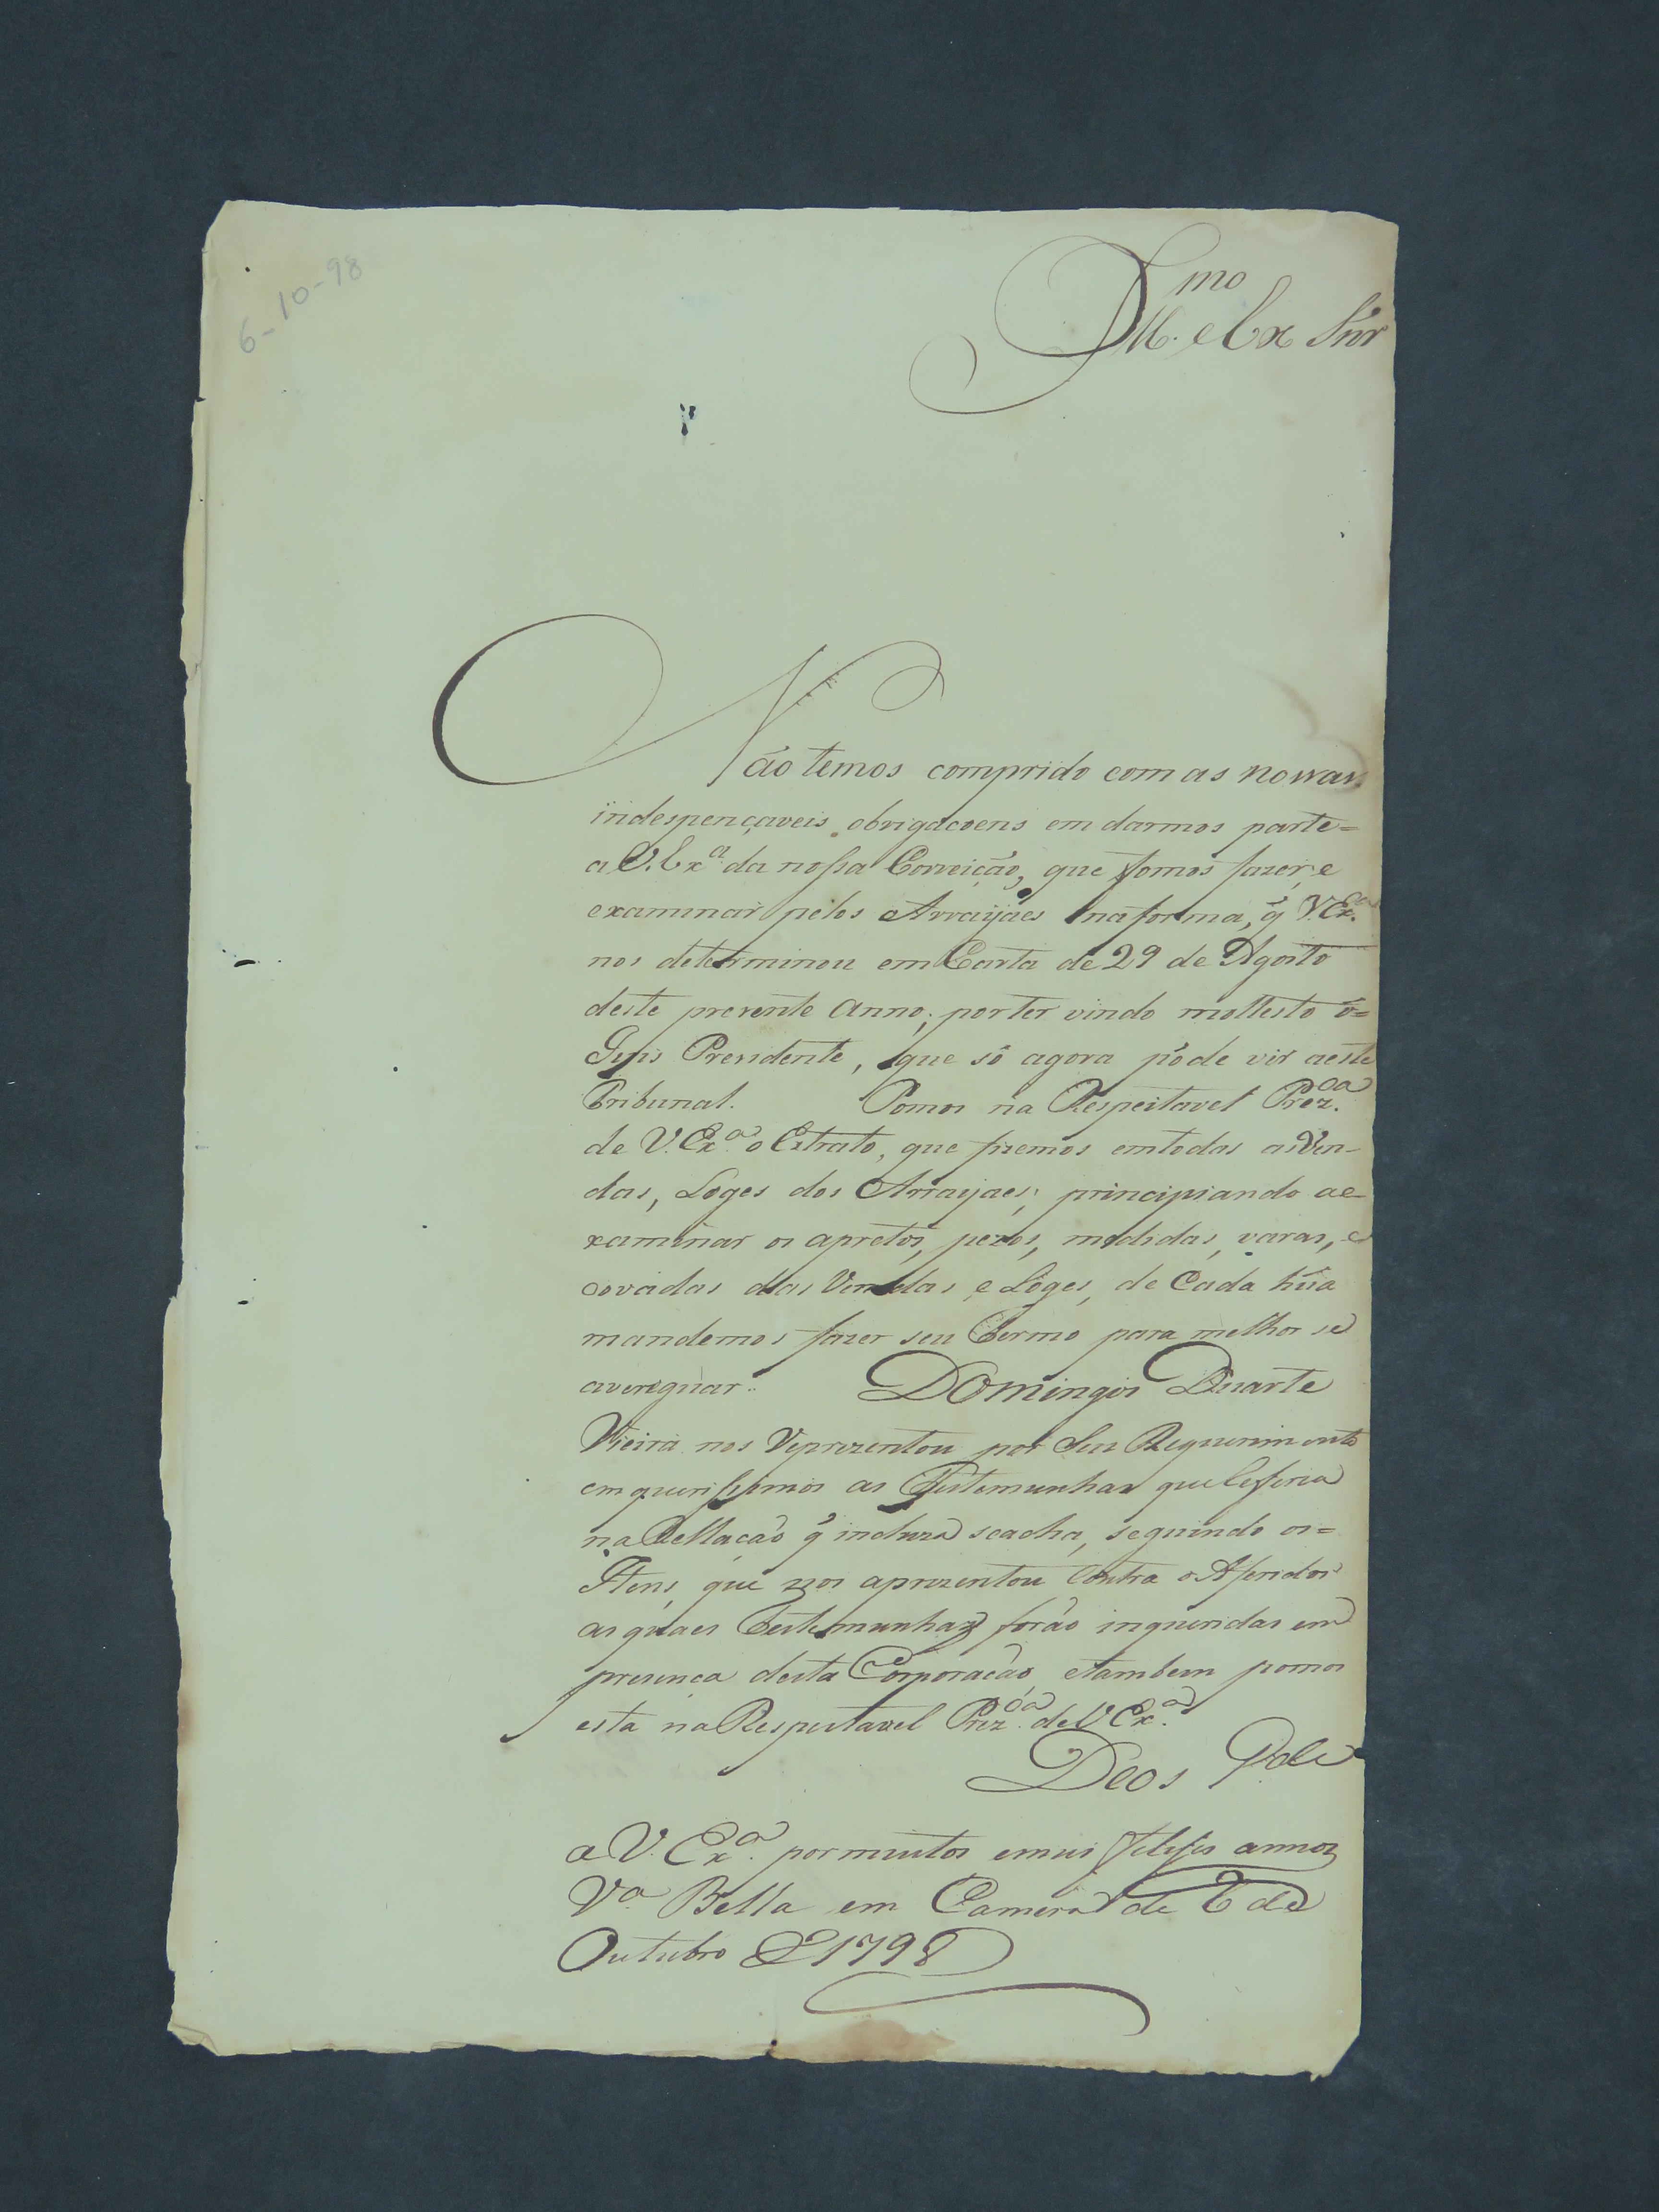 6-10-98
Ill.mo e Ex Snr
Não temos comprido com as nossas
indespençaveis obrigacoens em darmos parte=
a V. Exª da nossa Correição, que fomos fazer, e
examinar pelos Arrayaes na forma, q̃ V. Exª
nos determinou em Carta de 29 de Agosto
deste prezente Anno; por ter vindo mollesto o=
Juis Prezidente, que só agora póde vir aeste
Tribunal. Pomos na Respeitavel Prez.ca
de V. Exª o Estrato, que fizemos emtodas as Ven-
das, Loges dos Arrayaes; principiando ae-
xaminar os apretos, pezos, medidas, varas, e
covados das Vendas, e Loges, de Cada hũa
mandemos fazer seu Termo para melhor se
averiguar. Domingos Duarte
Vieira nos Reprezentou por seu Requerimento
emquerissemos as Testemunhas que
na Rellacão q̃ incluza seacha, seguindo os=
Itens, que nos aprezentou Contra o Aferidor
as quaes Testemunhas forão inqueridas em
presença desta Corporacão, etambem pomos
esta na Respeitavel Prez.ca de V. Exª
Deos G.de
a V. Exª por muitos emui felises annos
Vª Bella em Camera de 6 de
Outubro de 1798